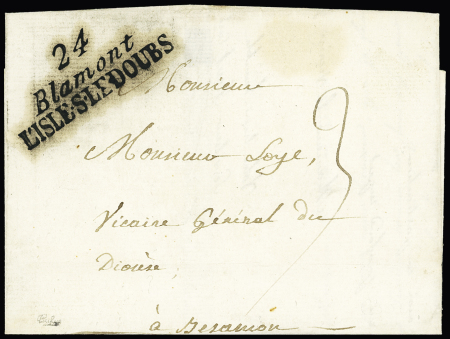 24
Blamont
L'ISLE-S-LE-DOUBS
Monsieur
3
Monsieur Loye,
Vicaire Général du
Diocèse
à Besançon